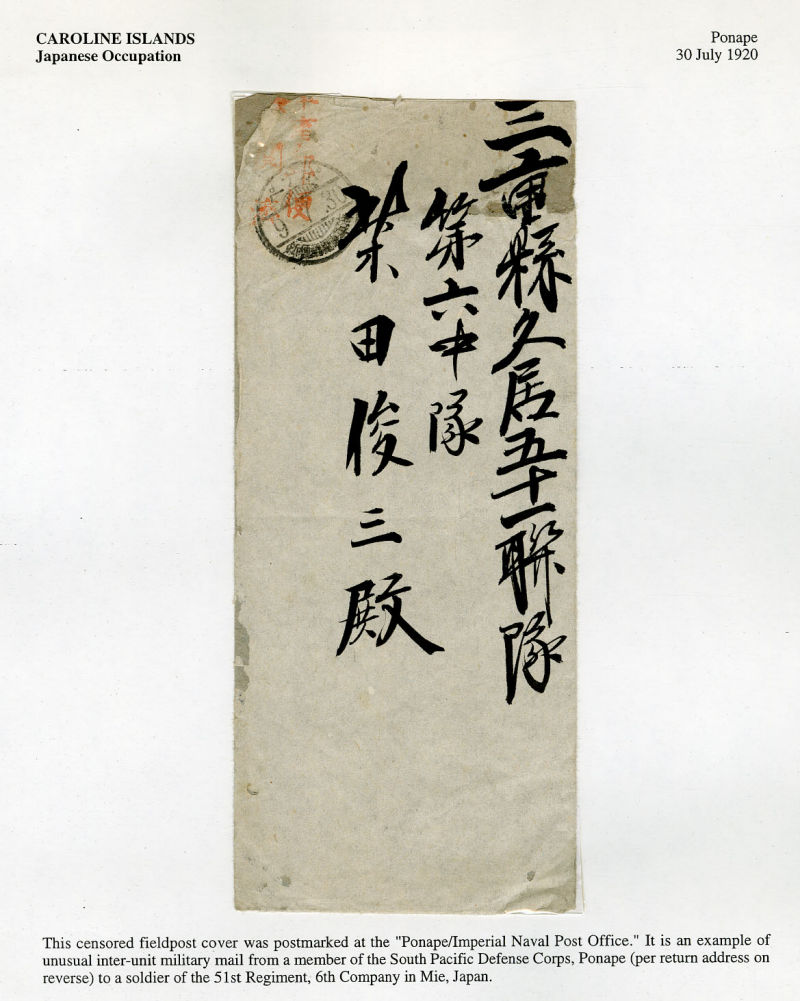 CAROLINE ISLANDS
Japanese Occupation
Ponape
30 July 1920
三重縣久居五十一聯隊
第六中隊
柴田俊三殿
便
9
30
This censored fieldpost cover was postmarked at the "Ponape/Imperial Naval Post Office." It is an example of
unusual inter-unit military mail from a member of the South Pacific Defense Corps, Ponape (per return address on
reverse) to a soldier of the 51st Regiment, 6th Company in Mie, Japan.